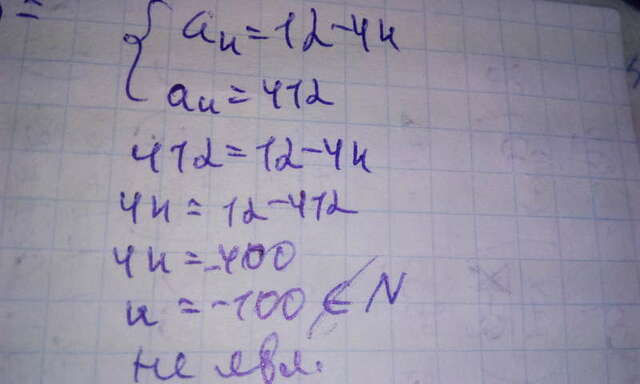 { aₙ = 12 - 4n
aₙ = 412
412 = 12 - 4n
4n = 12 - 412
4n = -400
n = -100 ∉ N
не явл.